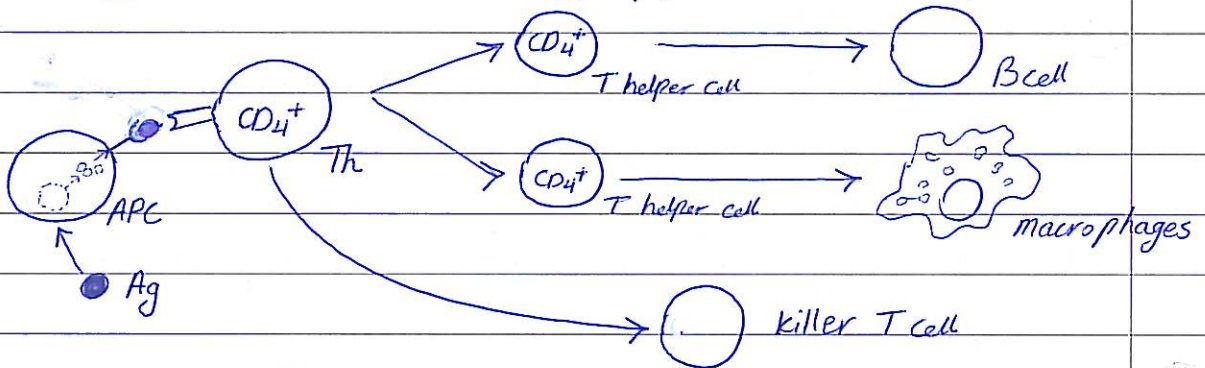 CD4+
T helper cell
B cell
CD4+
Th
CD4+
T helper cell
macrophages
APC
Ag
killer T cell